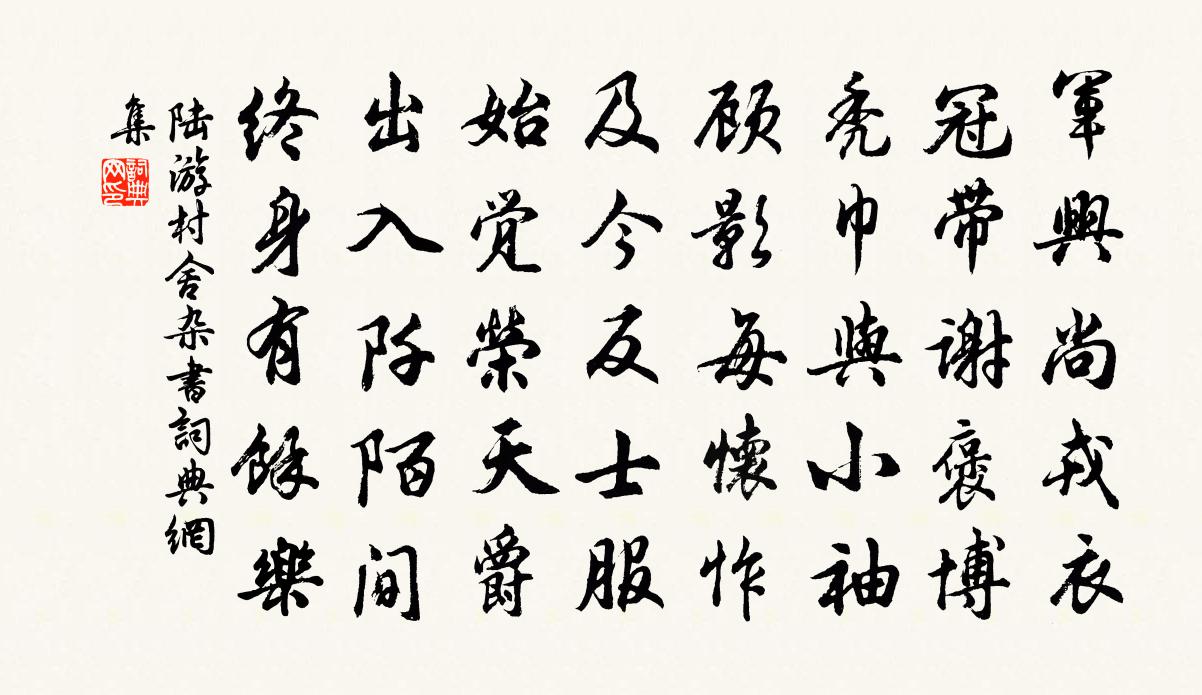 軍興尚戎衣
冠帶謝褒博
秃巾與小袖
顾影每懷怍
及今反士服
始觉榮天爵
出入阡陌间
终身有餘樂
陆游村舍杂書詞典網
集
詞典
网印